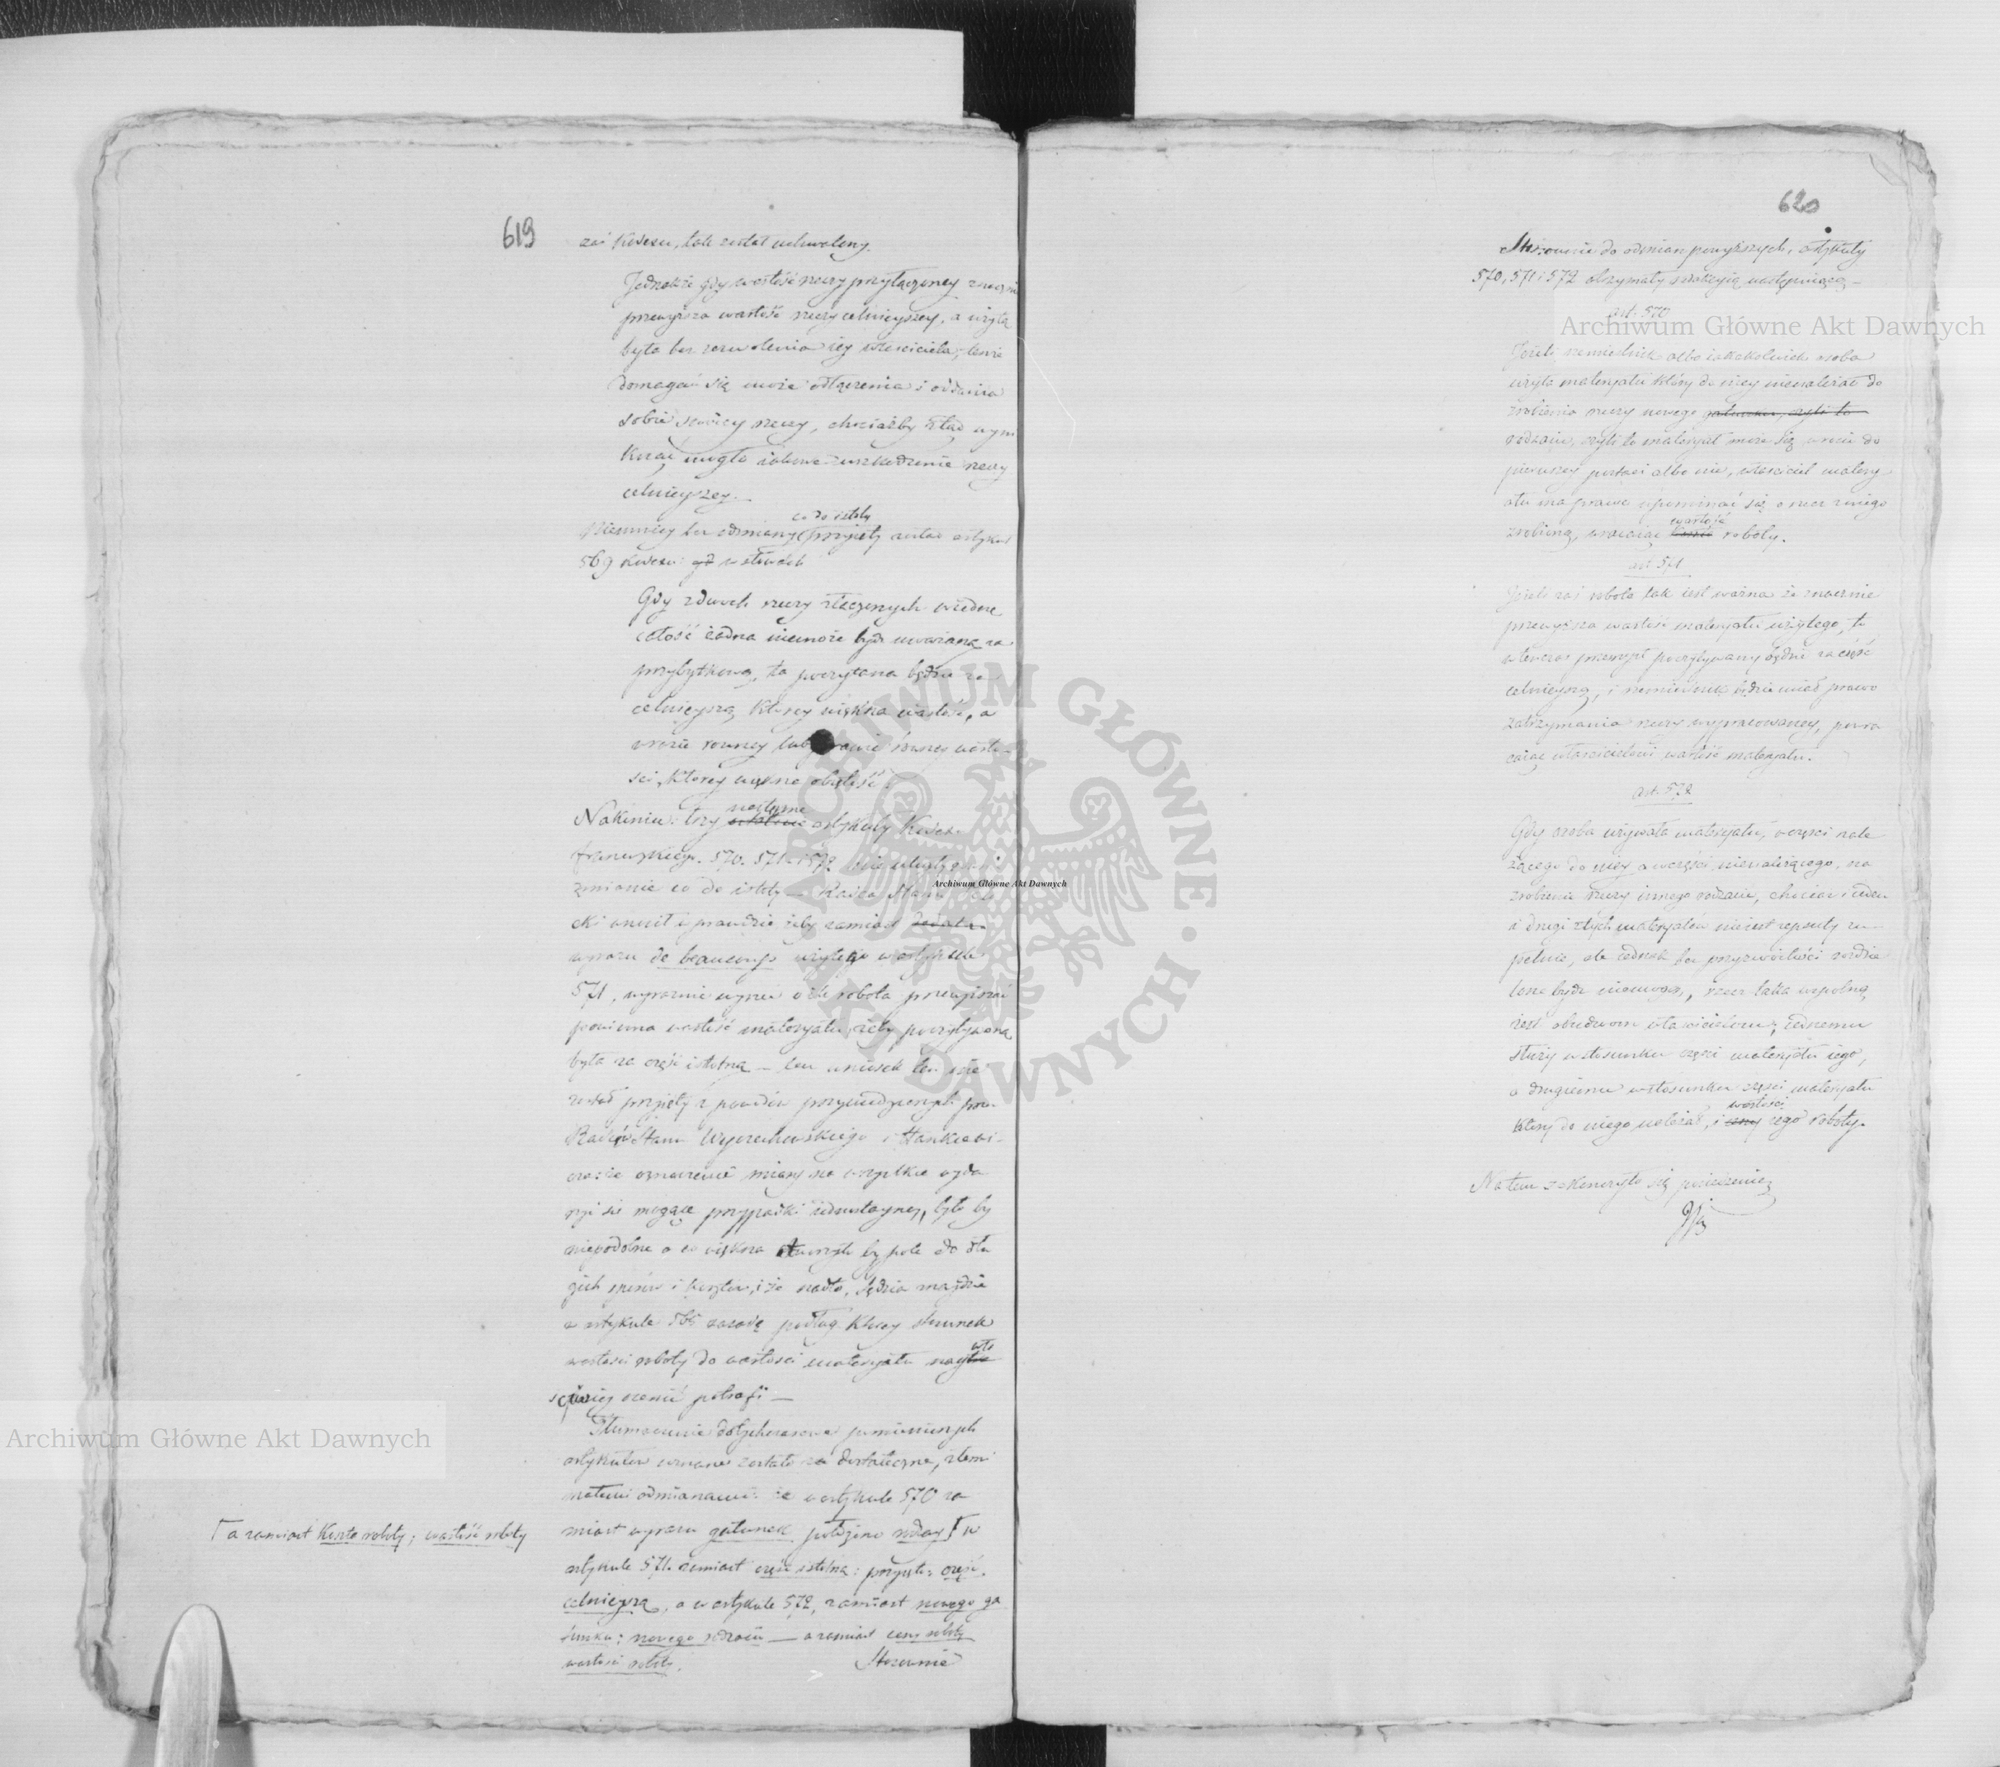 619
zaś Kodexu, tak został uchwalony.
Jednakże gdy wartość rzeczy przyłączoney znacznie
przewyższa wartość rzeczy celnieyszey, a użytą
była bez zezwolenia iey właściciela, tenże
domagać się może odłączenia i oddania
sobie swoiey rzeczy, chociażby ztąd wyni
knąć mogło iakowe uszkodzenie rzeczy
celnieyszey.
Niemniey bez odmiany co do istoty przyięty został artykuł
569 Kodexu: w słowach
Gdy z dwóch rzeczy złączonych w iedne
całość żadna niemoże bydź uważaną za
przybytkową, ta poczytana będzie za
celnieyszą którey większa wartość, a
w razie równey lub prawie równey warto-
ści, którey większa obiętość.
Nakoniec: trzy następne artykuły Kodex.
francuzkiego. 570. 571 i 572 nie uległy
zmianie co do istoty — Radca Stanu
cki wnosił wprawdzie żeby zamiast
wyrazu de beaucoup użytego w artykule
571, wyraźnie wyrzec o ile robota przewyższać
powinna wartość materyału, żeby poczytywaną
była za część istotną — lecz wniosek ten nie
został przyięty z powodów przywiedzionych przez
Radców Stanu Wyczechowskiego i Hankiewi
cza: że oznaczenie miary na wszystkie wyda
rzyć się mogące przypadki iednostayney, było by
niepodobne a co większa otworzyło by pole do dłu
gich sporów i kosztów, i że nadto, Sędzia znaydzie
w artykule 565 zasadę podług którey stosunek
wartości roboty do wartości materyału nay wła
ściwiey ocenić potrafi —
Tłumaczenie dotychczasowe pomienionych
artykułów uznane zostało za dostateczne, z temi
małemi odmianami: że w artykule 570 za
miast wyrazu gatunek położono rodzay ┌ w
┌ a zamiast koszta roboty; wartość roboty
artykule 571. zamiast część istotną: przyięto: część
celnieyszą, a w artykule 572, zamiast nowego ga
tunku; nowego rodzaiu — a zamiast ceny roboty
wartości roboty. Stosownie
620
Stosownie do odmian powyższych, artykuły
570, 571 i 572 otrzymały redakcyią następuiącą —
art. 570
Jeżeli rzemieślnik albo iakakolwiek osoba
użyła materyału który do niey nienależał do
zrobienia rzeczy nowego gatunku, czyli to
rodzaiu, czyli to materyał może się wrócić do
pierwszey postaci albo nie, właściciel matery
ału ma prawo upominać się o rzecz z niego
zrobioną, wracaiąc wartość roboty.
art. 571
Jeżeli zaś robota tak iest ważna że znacznie
przewyższa wartość materyału użytego, to
wtenczas przemysł poczytywany będzie za część
celnieyszą, i rzemieślnik będzie miał prawo
zatrzymania rzeczy wypracowaney, powra
caiąc właścicielowi wartość materyału.
art. 572
Gdy osoba używała materyału, w części nale
żącego do niey a w części nienależącego, na
zrobienie rzeczy innego rodzaiu, chociaż ieden
i drugi z tych materyałów nie iest zepsuty zu-
pełnie, ale iednak bez przyzwoitości rozdzie
lone bydź niemogą, rzecz taka wspólną
iest obudwom właścicielom; iednemu
służy w stosunku części materyału iego,
a drugiemu w stosunku części materyału
który do niego należał, i wartości ceny iego roboty.
Na tem zakończyło się posiedzenie
Archiwum Główne Akt Dawnych
Archiwum Główne Akt Dawnych
Archiwum Główne Akt Dawnych
ARCHIWUM GŁÓWNE AKT DAWNYCH